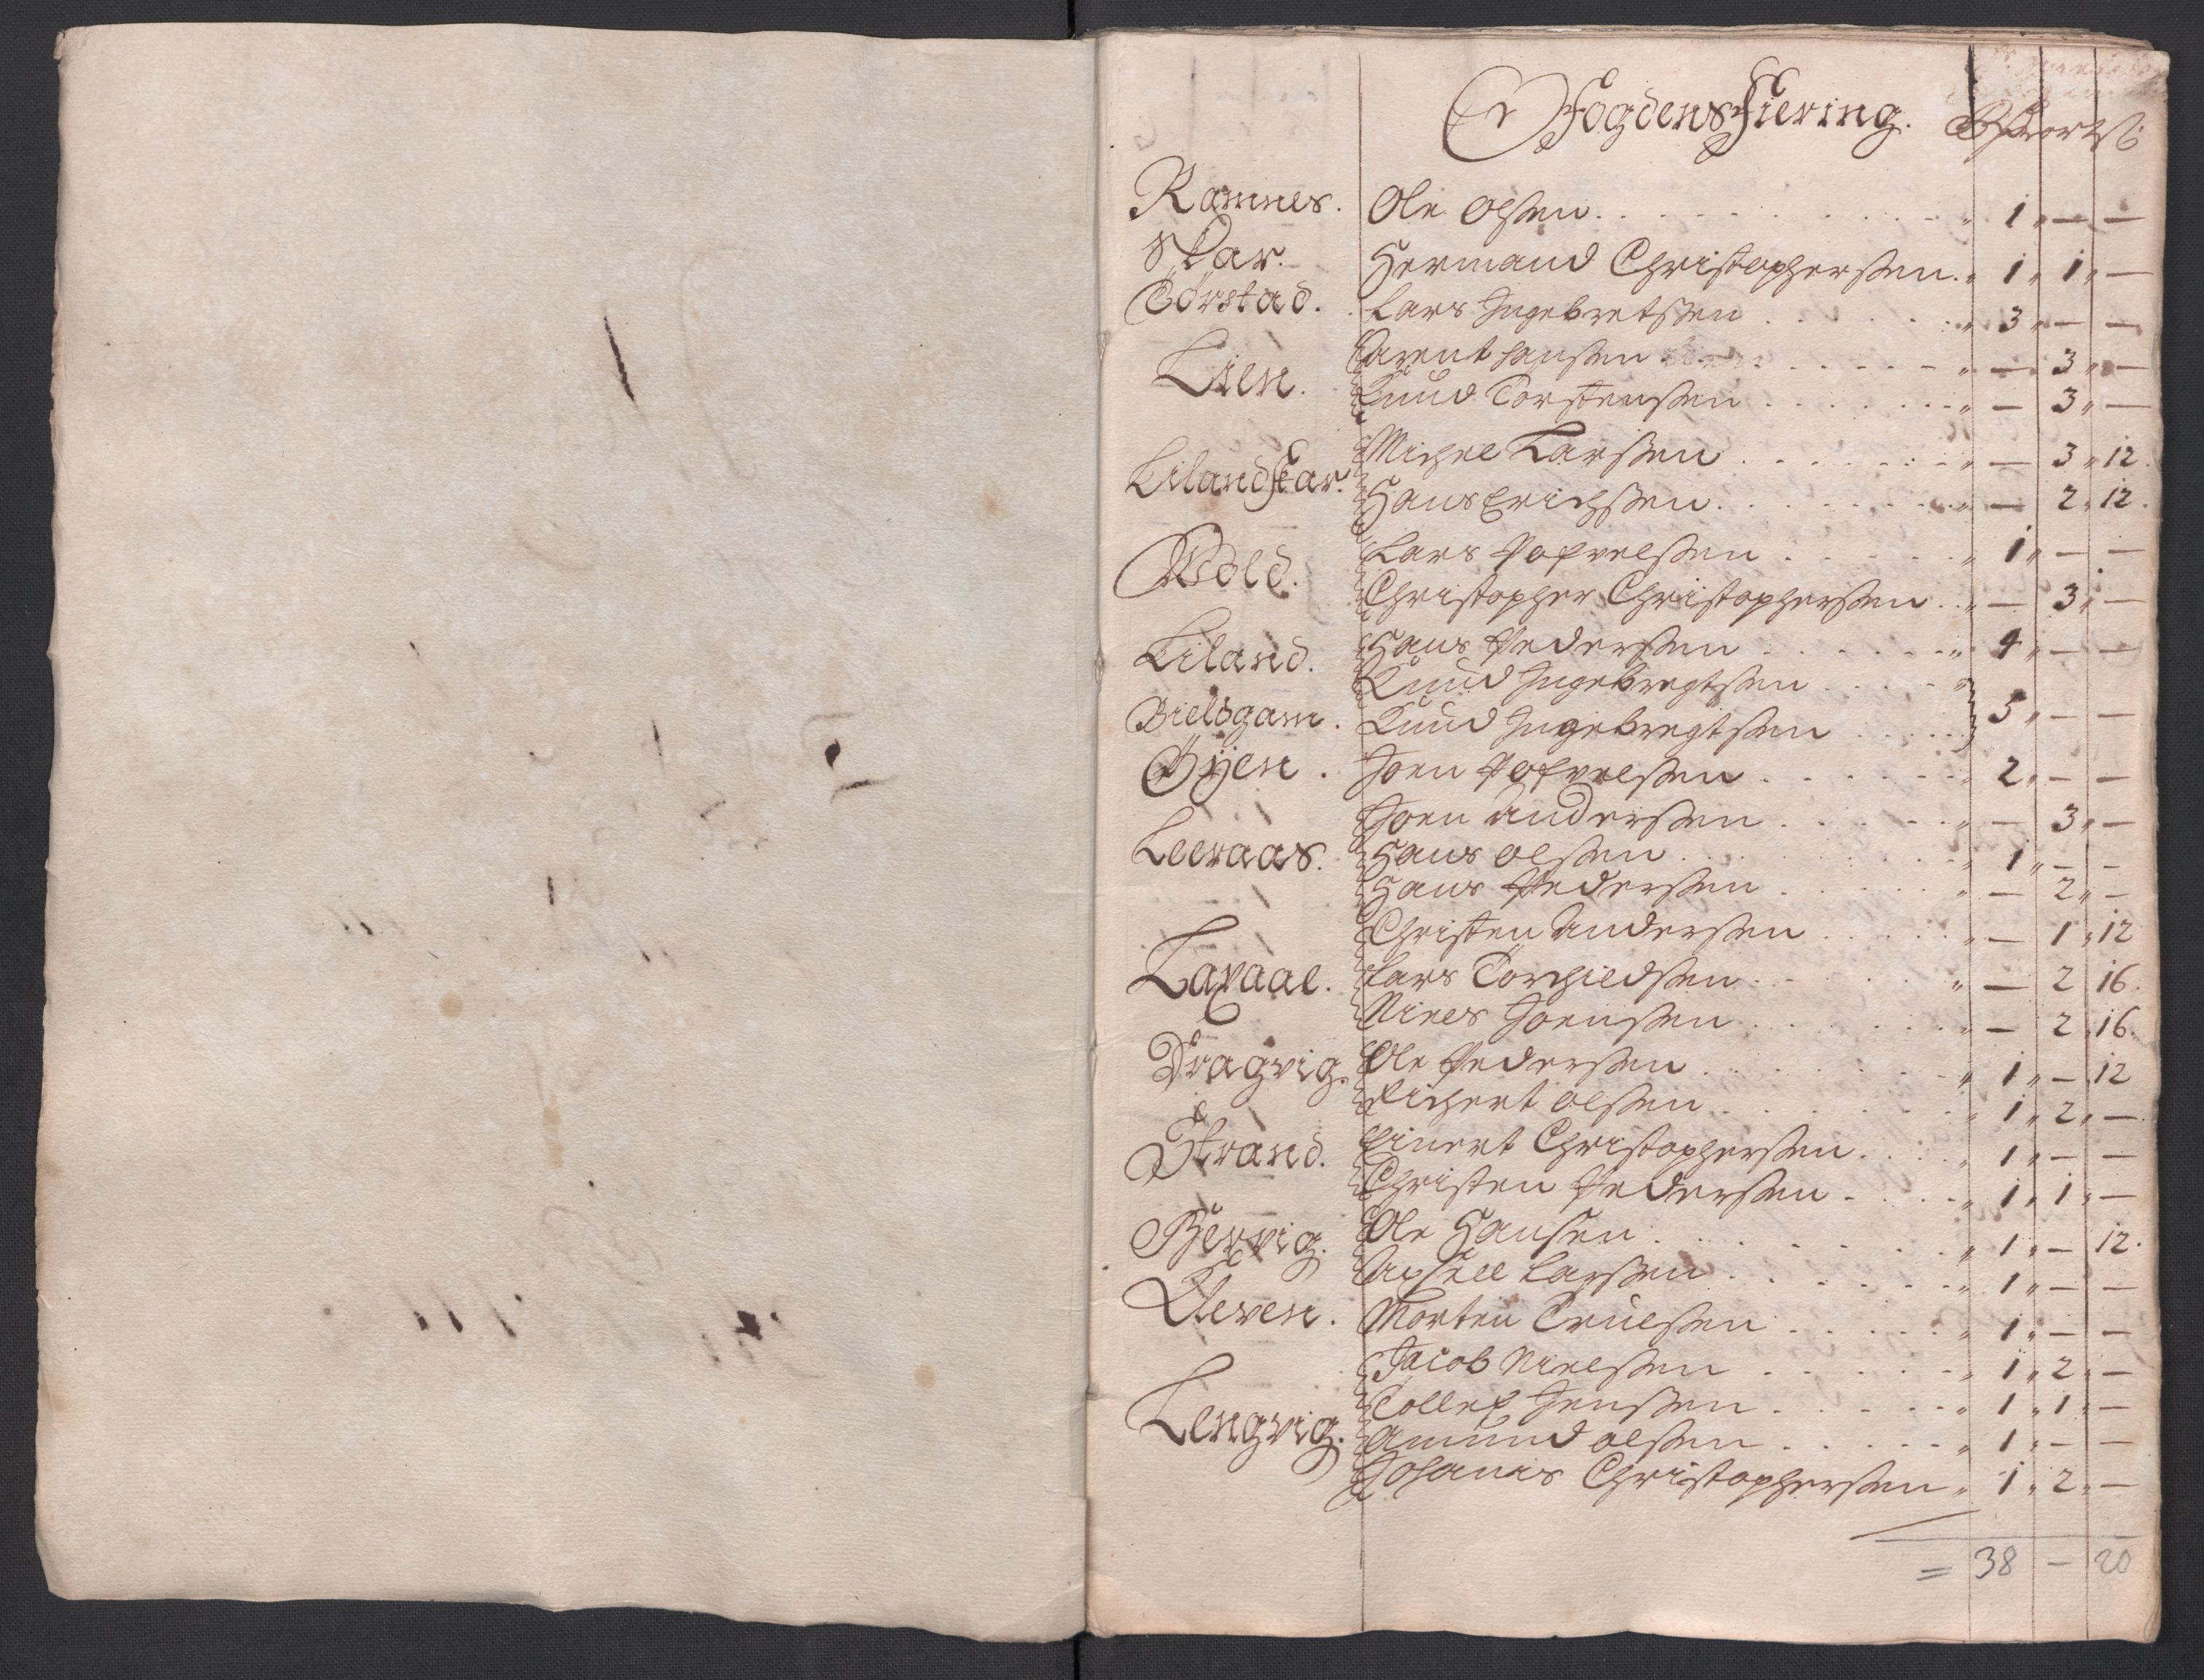 Fogdens Fiering.
Ramnes. Ole Olsen 1 — —
Skar. Hermand Christophersen 1 1 —
Torstad. Lars Ingebretsen 3 — —
Lien. Arent Hansen — 3 —
Knud Torstensen — 3 —
Lilandskar. Michel Larsen — 3 12.
Hans Erichsen — 2 12.
Wold. Lars Pofvelsen 1 — —
Christopher Christophersen — 3 —
Liland. Hans Pedersen 4 — —
Knud Ingebregtsen
Bielsgam. Knud Ingebregtsen 5 — —
Øÿen. Joen Pofvelsen 2 — —
Joen Andersen — 3 —
Leeraas. Hans Olsen 1 — —
Hans Pedersen — 2 —
Christen Andersen — 1 12
Laxaal. Lars Torchildsen — 2 16.
Niels Joensen — 2 16.
Dragvig. Ole Pedersen 1 — 12
Richert Olsen 1 2 —
Strand. Einert Christophersen 1 — —
Christen Pedersen 1 1 —
Bervig. Ole Hansen 1 — 12.
Axsell Larsen 1 — —
Kleven. Morten Truelsen 1 — —
Jacob Nielsen 1 2 —
Lengvig. Tollef Jensen 1 1 —
Amund Olsen 1 — —
Johanis Christophersen 1 2 —
= 38 — 20